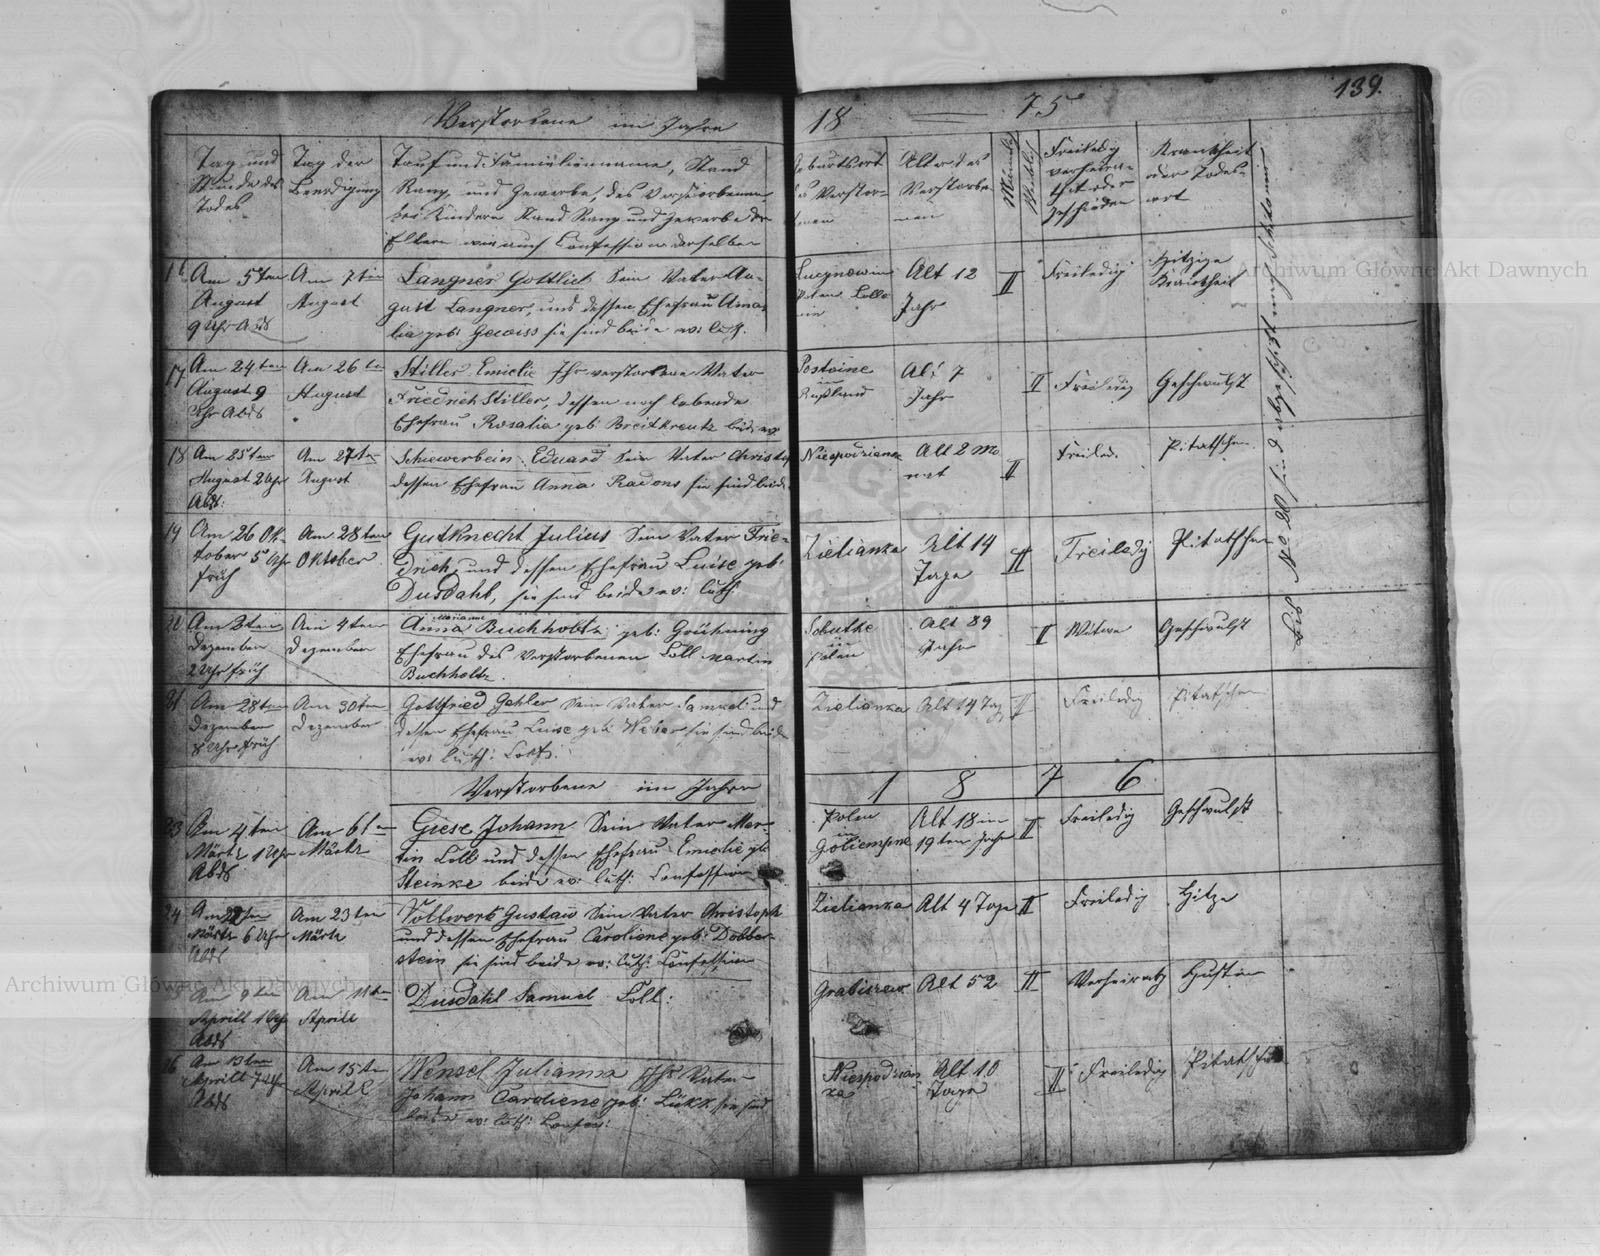 139.
Verstorbene im Jahre 18 75
Tag und
Stunde des
Todes.
Tag der
Beerdigung
Tauf und Familienname, Stand
Rang und Gewerbe, des Verstorbenen
bei Kindern Stand Rang und Gewerbe der
Eltern wie auch Confession derselben
Geburtsort
des Verstor-
benen
Alter des
Verstorbe-
nen
Männlich
Weiblich
Freiledig
verheira-
thet oder
geschieden
Krankheit
oder Todes-
art
16
Am 5ten
August
9 Uhr Abds
Am 7ten
August
Langner Gottlieb Sein Vater Au-
gust Langner, und dessen Ehefrau Ama-
lia geb: Gewiss sie sind beide ev: luth.
Polen
Alt 12
Jahr
II
Freiledig
Hitzige
Krankheit
17
Am 24ten
August 9
Uhr Abds
Am 26ten
August
Stiller Emielie Ihr verstorbene Vater
Friedrich Stiller, dessen noch lebende
Ehefrau Rosalia geb: Breitkreutz beide ev:
Pestoine
in
Rußland
Alt 7
Jahr
II
Freiledig
Geschwulst
18
Am 25ten
August 2 Uhr
Abds:
Am 27ten
August
Schewerbein Eduard Sein Vater Christoph
dessen Ehefrau Anna Radons sie sind beide
Niespodzianka
Alt 2 Mo
nat
II
Freiled.
Pitatschen
19
Am 26 Ok-
tober 5 Uhr
früh
Am 28ten
Oktober
Gutknecht Julius Sein Vater Frie-
drich, und dessen Ehefrau Luise geb:
Dusdahl, sie sind beide ev: luth:
Zielianka
Alt 14
Tage
II
Freiledig
Pitatschen
20
Am 2ten
Dezember
2 Uhr früh
Am 4ten
Dezember
Marianne
Anna Buchholtz geb: Grühning
Ehefrau des Verstorbenen Coll Martin
Buchholtz.
in
Polen
Alt 89
Jahr
II
Witwe
Geschwulst
21
Am 28ten
Dezember
8 Uhr früh
Am 30ten
Dezember
Gottfried Gehler Sein Vater Samuel und
dessen Ehefrau Luise geb: Weber, sie sind beide
ev: luth: Conf:
Zielianka
Alt 14 Tag
II
Freiledig
Pitatschen
Verstorbene im Jahre 1 8 7 6
23
Am 4ten
Märtz 1 Uhr
Abds
Am 6ten
Märtz
Giese Johann Sein Vater Mar-
tin Coll und dessen Ehefrau Emielie geb
Steinke beide ev: luth: Confession
Polen
in
Alt 18 im
19ten Jahr
II
Freiledig
Geschwulst
24
Märtz 6 Uhr
Abds
Am 23ten
Märtz
Vollwerk Gustav Sein Vater Christoph
und dessen Ehefrau Caroliene geb: Dobber-
stein sie sind beide ev: luth: Confession
Zielianka
Alt 4 Tage
II
Freiledig
Hitze
25
Am 9ten
Aprill 1 Uhr
Abds
Am 11ten
Aprill
Dusdahl Samuel Coll:
Grabiszew
Alt 52
II
Verheiratg
Husten
26
Am 13ten
Aprill 7 Uhr
Abds
Am 15ten
Aprill
Wensel Julianna Ihr Vater
Johann Caroliene geb: Lükk, sie sind
beide ev: luth: Confess:
Niespodzian
ka
Alt 10
Tage
II
Freiledig
Pitatschen
Archiwum Główne Akt Dawnych
Archiwum Główne Akt Dawnych